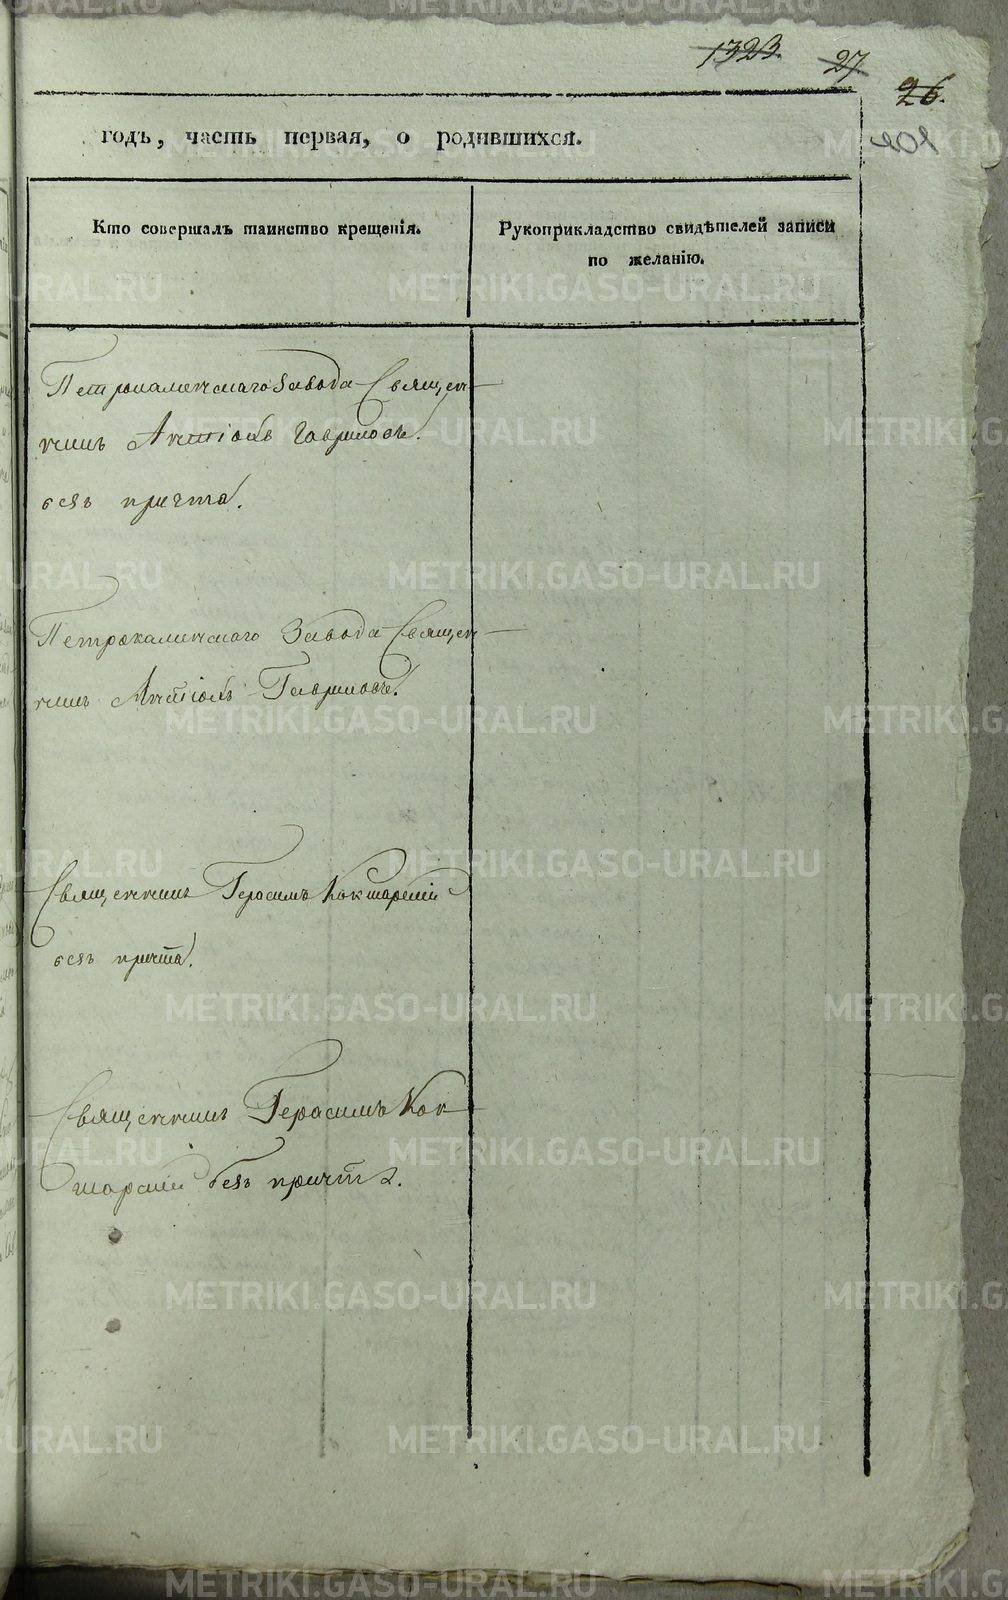 1323. 27
26.
годъ, часть первая, о родившихся.
Кто совершалъ таинство крещенія.
Рукоприкладство свидѣтелей записи
по желанію.
Петрокаменскаго Завода Священ-
никъ Гавриловъ.
безъ причта.
Петрокаменскаго Завода Священ-
никъ Гавриловъ.
Священникъ Герасимъ Кокшарскій
безъ причта.
Священникъ Герасимъ Кок
шарскій безъ причта.
METRIKI.GASO-URAL.RU